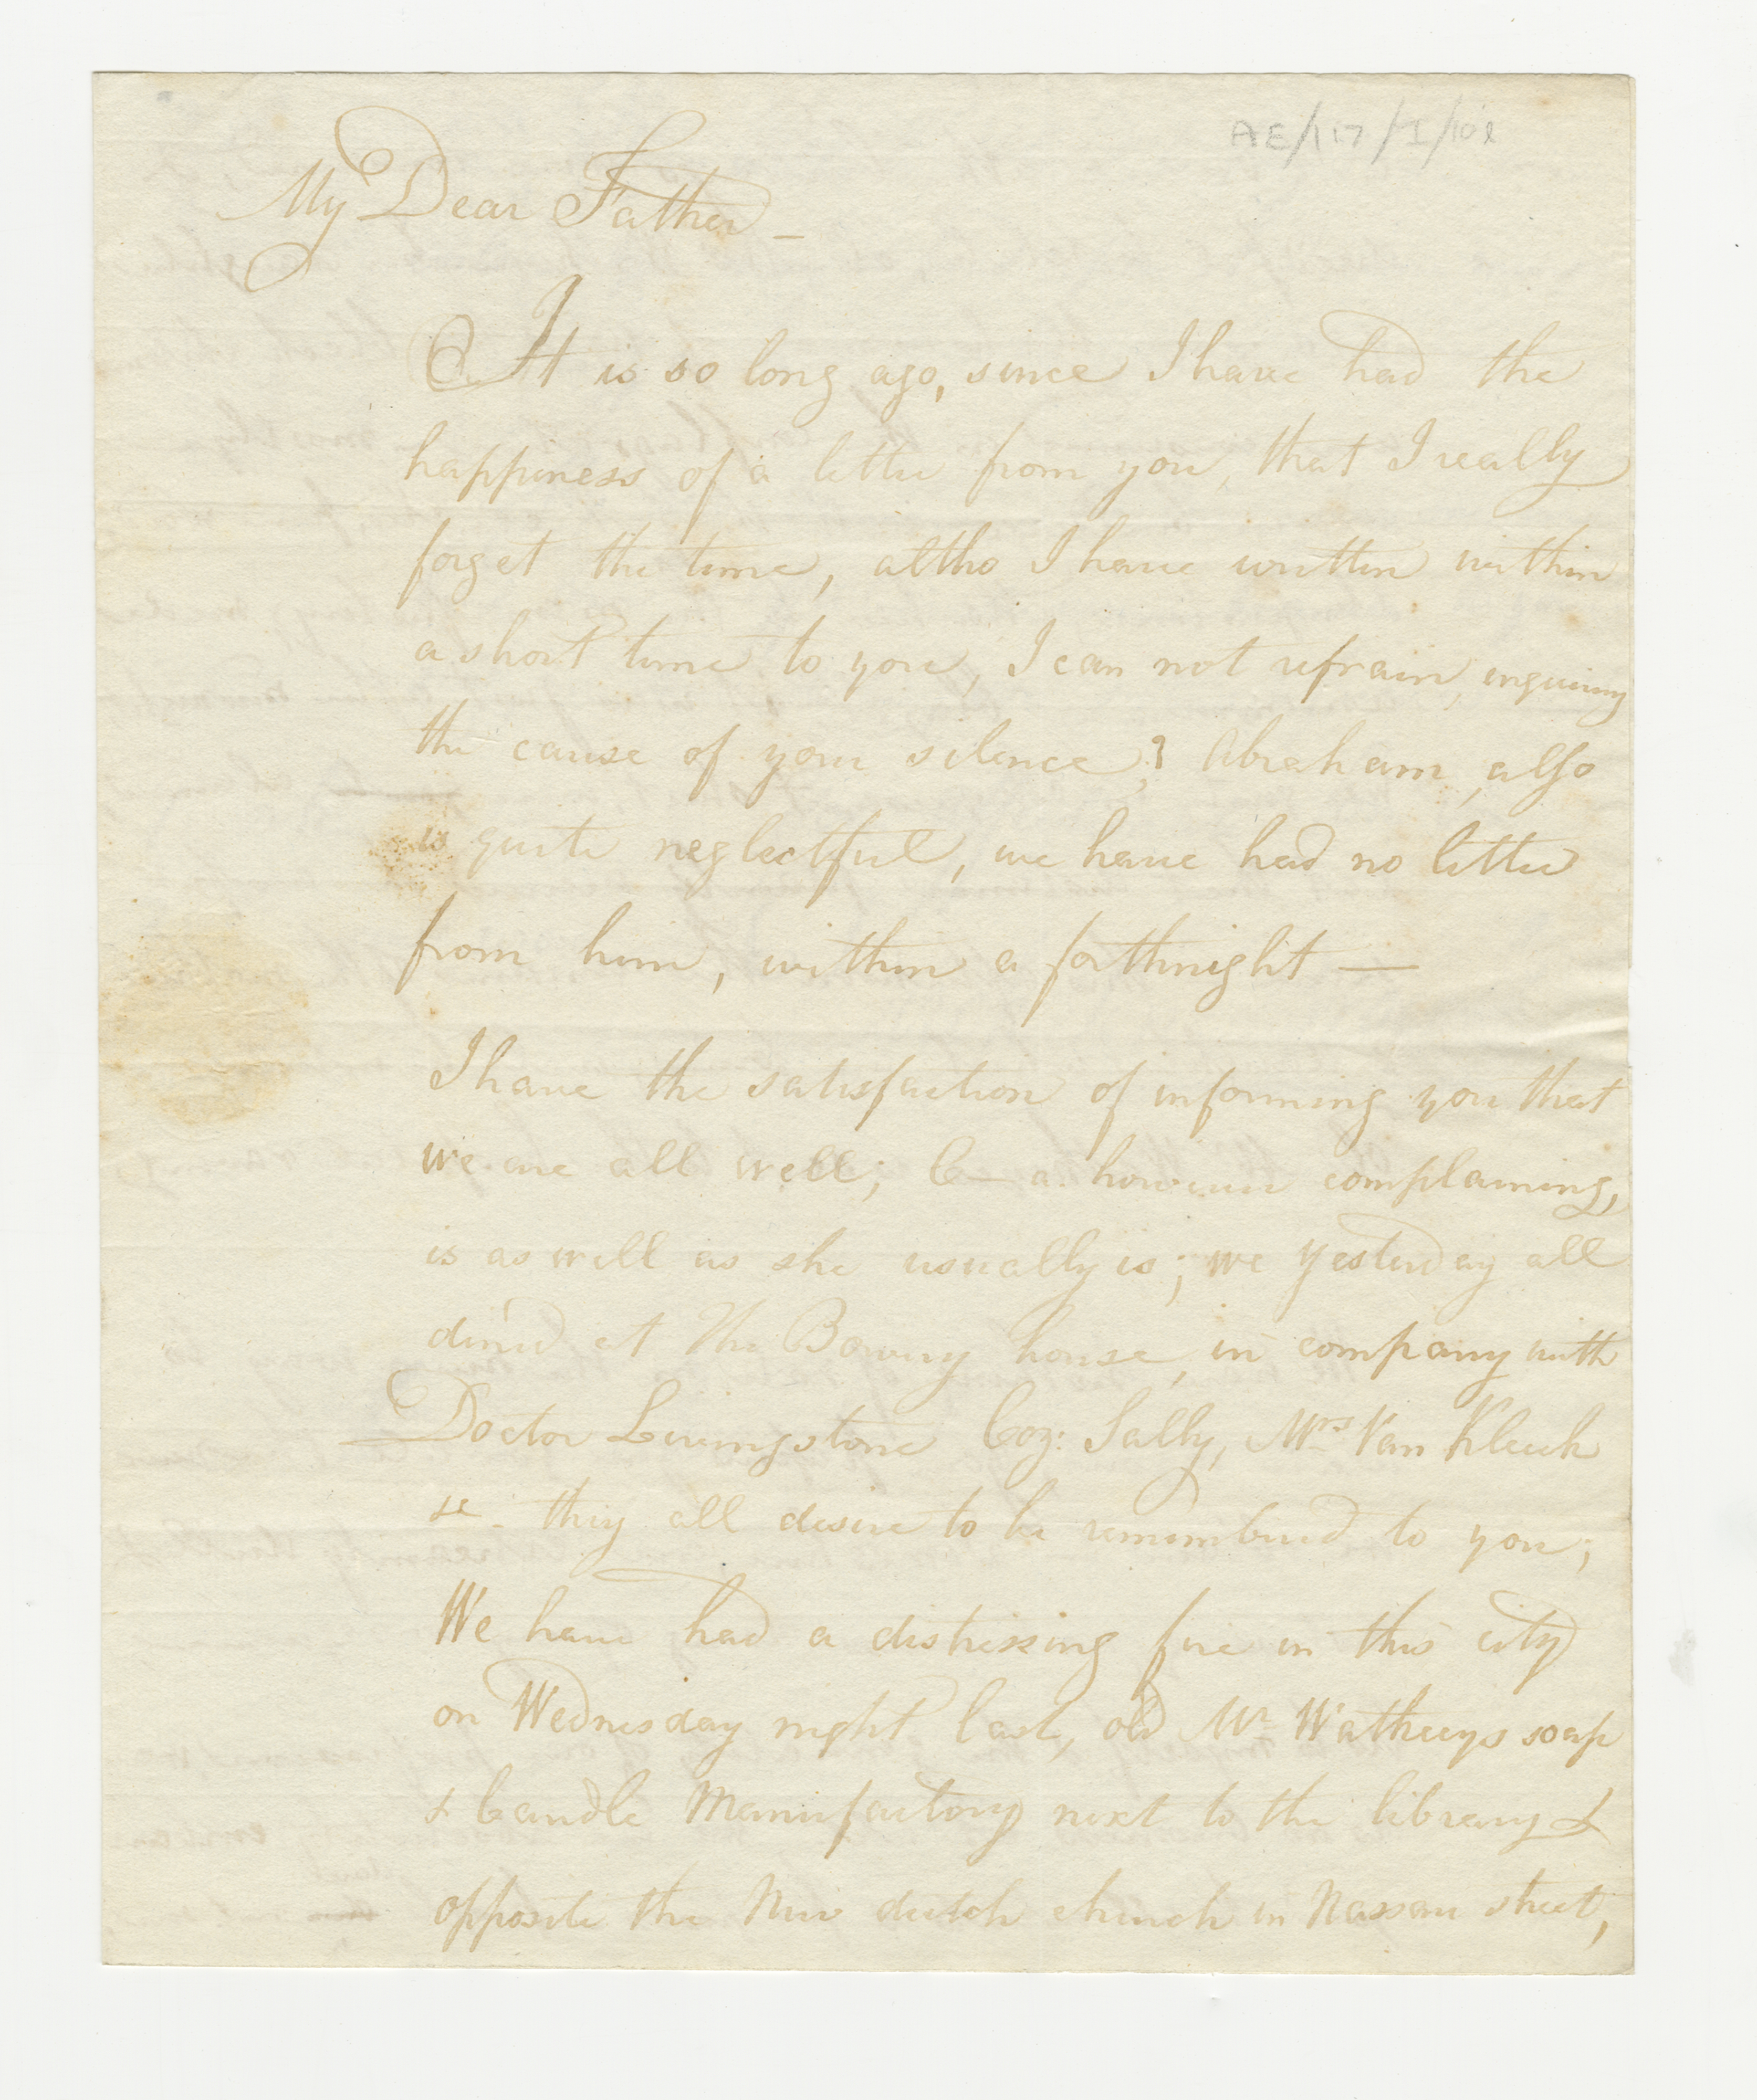 AE/117/I/10
My Dear Father —
It is so long ago, since I have had the
happiness of a letter from you, that I really
forget the time, altho I have written within
a short time to you, I can not refrain, inquiring
the cause of your silence,? Abraham, also
is quite neglectful, we have had no letter
from him, within a forthnight —
I have the satisfaction of informing you that
we are all well; C— a. however complaining,
is as well as she usually is; we yesterday all
dined at The Bowery house, in company with
Doctor Livingstone Coz: Sally, Mrs Van Kleeck
&c. they all desire to be rememberd to you;
We have had a distressing fire in this city
on Wednesday night last, old Mr soap
& Candle Manufactory next to the library &
opposite the New dutch church in Nassau street,